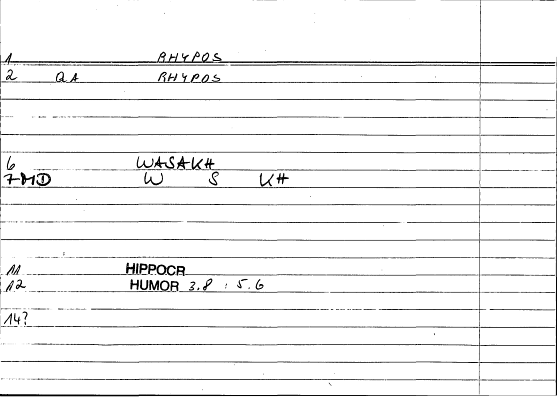 1 RHYPOS
2 QA RHYPOS
6 WASAKH
7 MD W S KH
11 HIPPOCR
12 HUMOR 3.8 : 5.6
14?